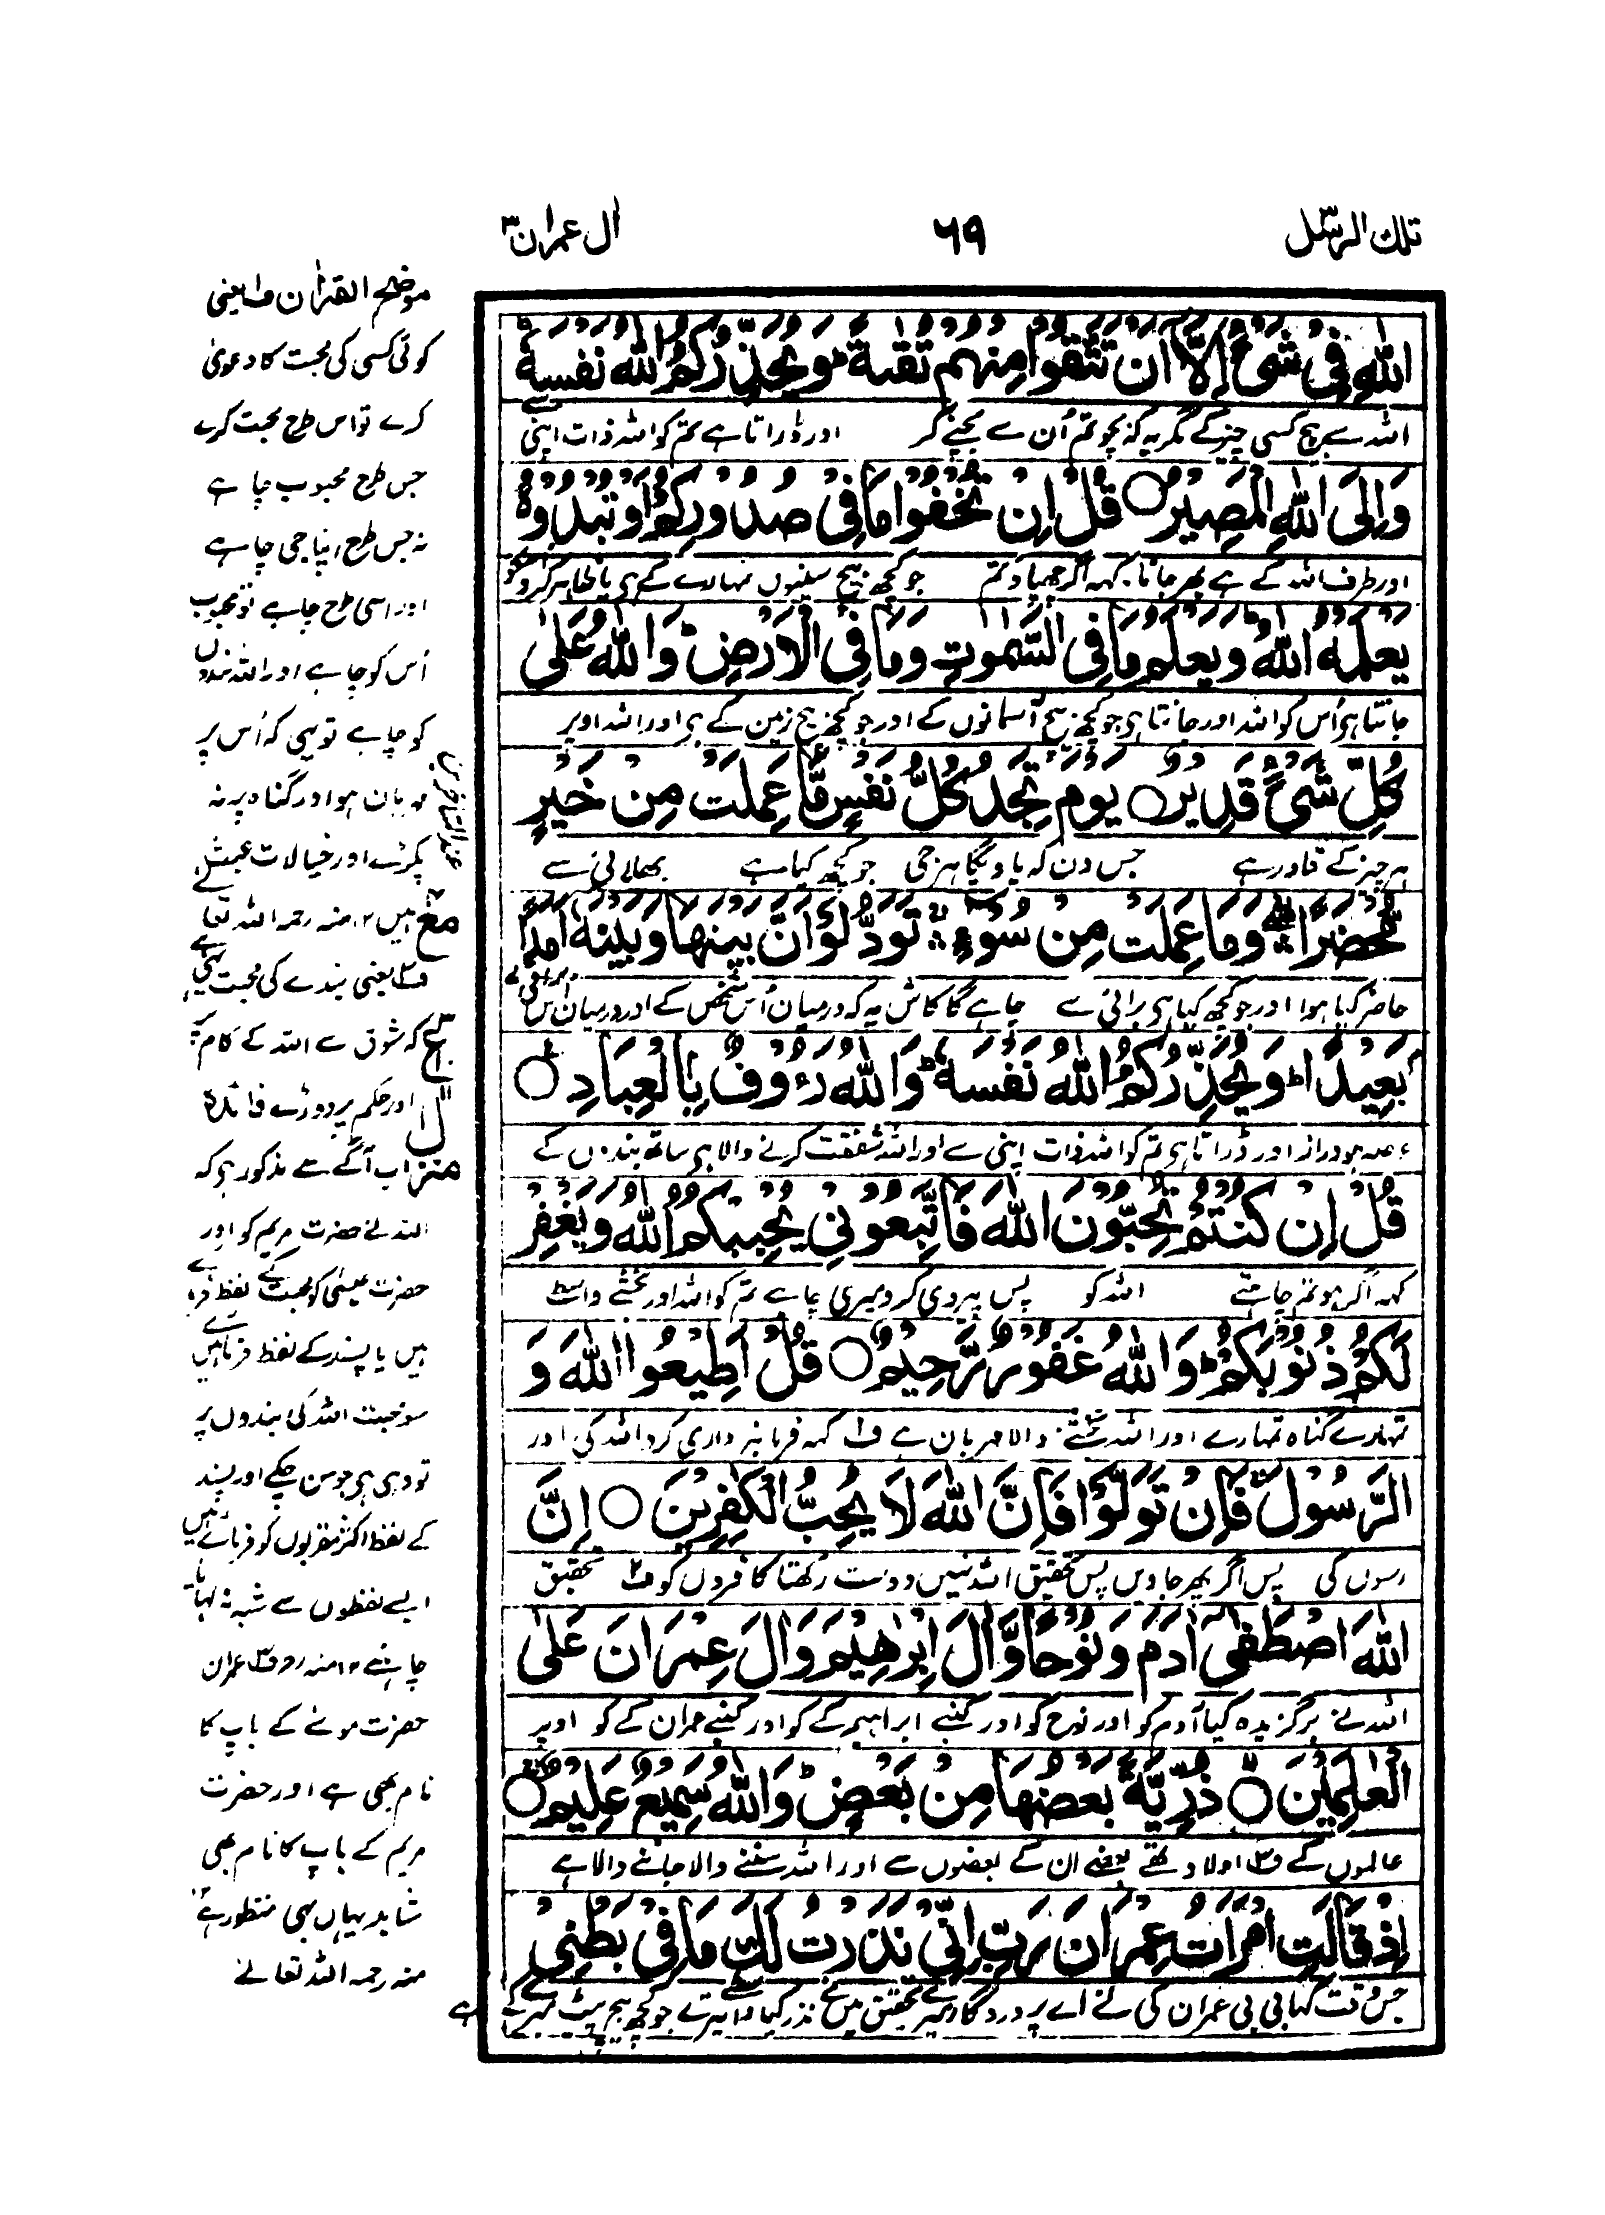 تلك الرسل ٣
٦٩
اٰل عمران ٣
اللّٰهِ فِیْ شَیْءٍ اِلَّاۤ اَنْ تَتَّقُوْا مِنْهُمْ تُقٰىةً ؕ وَ یُحَذِّرُكُمُ اللّٰهُ نَفْسَهٗ ؕ
اللہ سے بیچ کسی چیز کے مگر یہ کہ بچو تم اُن سے بچنے کر اور ڈراتا ہے تم کو اللہ ذات اپنی سے
وَ اِلَی اللّٰهِ الْمَصِیْرُ ○ قُلْ اِنْ تُخْفُوْا مَا فِیْ صُدُوْرِكُمْ اَوْ تُبْدُوْهُ
اور طرف اللہ کے ہے پھر جانا کہہ اگر چھپاؤ تم جو کچھ بیچ سینوں تمہارے کے ہی یا ظاہر کرو
یَعْلَمْهُ اللّٰهُ ؕ وَ یَعْلَمُ مَا فِی السَّمٰوٰتِ وَ مَا فِی الْاَرْضِ ؕ وَ اللّٰهُ عَلٰی
جانتا ہی اُس کو اللہ اور جانتا ہی جو کچھ بیچ آسمانوں کے اور جو کچھ بیچ زمین کے ہی اور اللہ اوپر
كُلِّ شَیْءٍ قَدِیْرٌ ○ یَوْمَ تَجِدُ كُلُّ نَفْسٍ مَّا عَمِلَتْ مِنْ خَیْرٍ
ہر چیز کے قادر ہے جس دن کہ پاویگا ہر جی جو کچھ کیا ہے بھلائی سے
مُّحْضَرًا ۛۖۚ وَّ مَا عَمِلَتْ مِنْ سُوْٓءٍ ۛۚ تَوَدُّ لَوْ اَنَّ بَیْنَهَا وَ بَیْنَهٗۤ اَمَدًۢا
حاضر کیا ہوا اور جو کچھ کیا ہی برائی سے چاہے گا کاش یہ کہ درمیان اُس شخص کے اور درمیان اس
بَعِیْدًا ؕ وَ یُحَذِّرُكُمُ اللّٰهُ نَفْسَهٗ ؕ وَ اللّٰهُ رَءُوْفٌۢ بِالْعِبَادِ ○
ہو دراز اور ڈراتا ہی تم کو اللہ ذات اپنی سے اور اللہ شفقت کرنے والا ہی ساتھ بندوں کے
قُلْ اِنْ كُنْتُمْ تُحِبُّوْنَ اللّٰهَ فَاتَّبِعُوْنِیْ یُحْبِبْكُمُ اللّٰهُ وَ یَغْفِرْ
کہہ اگر ہو تم چاہتے اللہ کو پس پیروی کرو میری چاہے تم کو اللہ اور بخشے واسطے
لَكُمْ ذُنُوْبَكُمْ ؕ وَ اللّٰهُ غَفُوْرٌ رَّحِیْمٌ ○ قُلْ اَطِیْعُوا اللّٰهَ وَ
تمہارے گناہ تمہارے اور اللہ بخشنے والا مہربان ہے ف۱ کہہ فرمانبرداری کرو اللہ کی اور
الرَّسُوْلَ ۚ فَاِنْ تَوَلَّوْا فَاِنَّ اللّٰهَ لَا یُحِبُّ الْكٰفِرِیْنَ ○ اِنَّ
رسول کی پس اگر پھر جاویں پس تحقیق اللہ نہیں دوست رکھتا کافروں کو ف۲ تحقیق
اللّٰهَ اصْطَفٰۤی اٰدَمَ وَ نُوْحًا وَّ اٰلَ اِبْرٰهِیْمَ وَ اٰلَ عِمْرٰنَ عَلَی
اللہ نے برگزیدہ کیا آدم کو اور نوح کو اور کنبے ابراہیم کے کو اور کنبے عمران کے کو اوپر
الْعٰلَمِیْنَ ○ ذُرِّیَّةًۢ بَعْضُهَا مِنْۢ بَعْضٍ ؕ وَ اللّٰهُ سَمِیْعٌ عَلِیْمٌ ○
عالموں کے ف۳ اولاد تھے بعضے ان کے بعضوں سے اور اللہ سننے والا جاننے والا ہے
اِذْ قَالَتِ امْرَاَتُ عِمْرٰنَ رَبِّ اِنِّیْ نَذَرْتُ لَكَ مَا فِیْ بَطْنِیْ
جس وقت کہا بی بی عمران کی نے اے پروردگار میرے تحقیق میں نے نذر کیا واسطے تیرے جو کچھ بیچ پیٹ میرے کے ہے
موضح القرآن ف۱ یعنی
کوئی کسی کی محبت کا دعویٰ
کرے تو اس طرح محبت کرے
جس طرح محبوب چاہے
نہ جس طرح اپنا جی چاہے
اور اسی طرح چاہے تو محبوب
اُس کو چاہے اور اللہ بندوں
کو چاہے تو یہی کہ اُس پر
مہربان ہو اور گناہ پر نہ
پکڑے اور خیالات عبث
ہیں ۱۲ منہ رحمہ اللہ تعالے
ف۲ یعنی بندے کی محبت یہی ہے
کہ شوق سے اللہ کے کام پر
اور حکم پر دوڑے فائدہ
اب آگے سے مذکور ہی کہ
اللہ نے حضرت مریم کو اور
حضرت عیسیٰ کو محبت کے لفظ
ہیں یا پسند کے لفظ فرمائے ہیں
سو محبت اللہ کی بندوں پر
تو وہی ہی جو سن چکے اور پسند
کے لفظ اکثر مقربوں کو فرمائے ہیں
ایسے لفظوں سے شبہ نہ کہانا
چاہئے ۱۲ منہ رح ف۳ عمران
حضرت موسٰے کے باپ کا
نام بھی ہے اور حضرت
مریم کے باپ کا نام بھی
شاید یہاں یہی منظور ہے
منہ رحمہ اللہ تعالےٰ